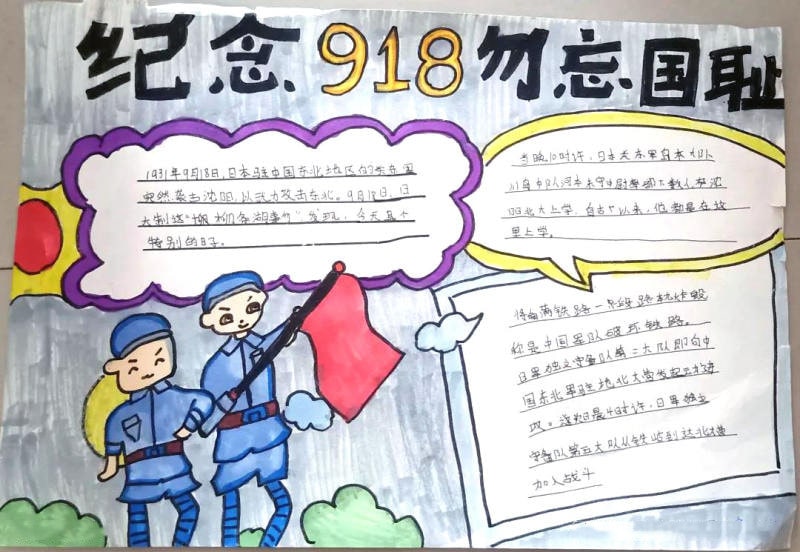 纪念918勿忘国耻
1931年9月18日,日本驻中国东北地区的关东军
突然袭击沈阳,以武力攻击东北。9月18日,日
大制造“柳条湖事 发现,今天是个
特别的日子。
当晚10时许,日本关东军岛本大队
川岛中队河本末守中尉率部下数人在沈
自古 以来,他都是在这
里上学。
将南满铁路一段路轨炸毁
称是中国军队破坏铁路。
日军独立守备队第二大队即向中
国东北军驻地北大营发起
攻。 4时许,日军独立
守备队第五大队从铁 到达北大营
加入战斗